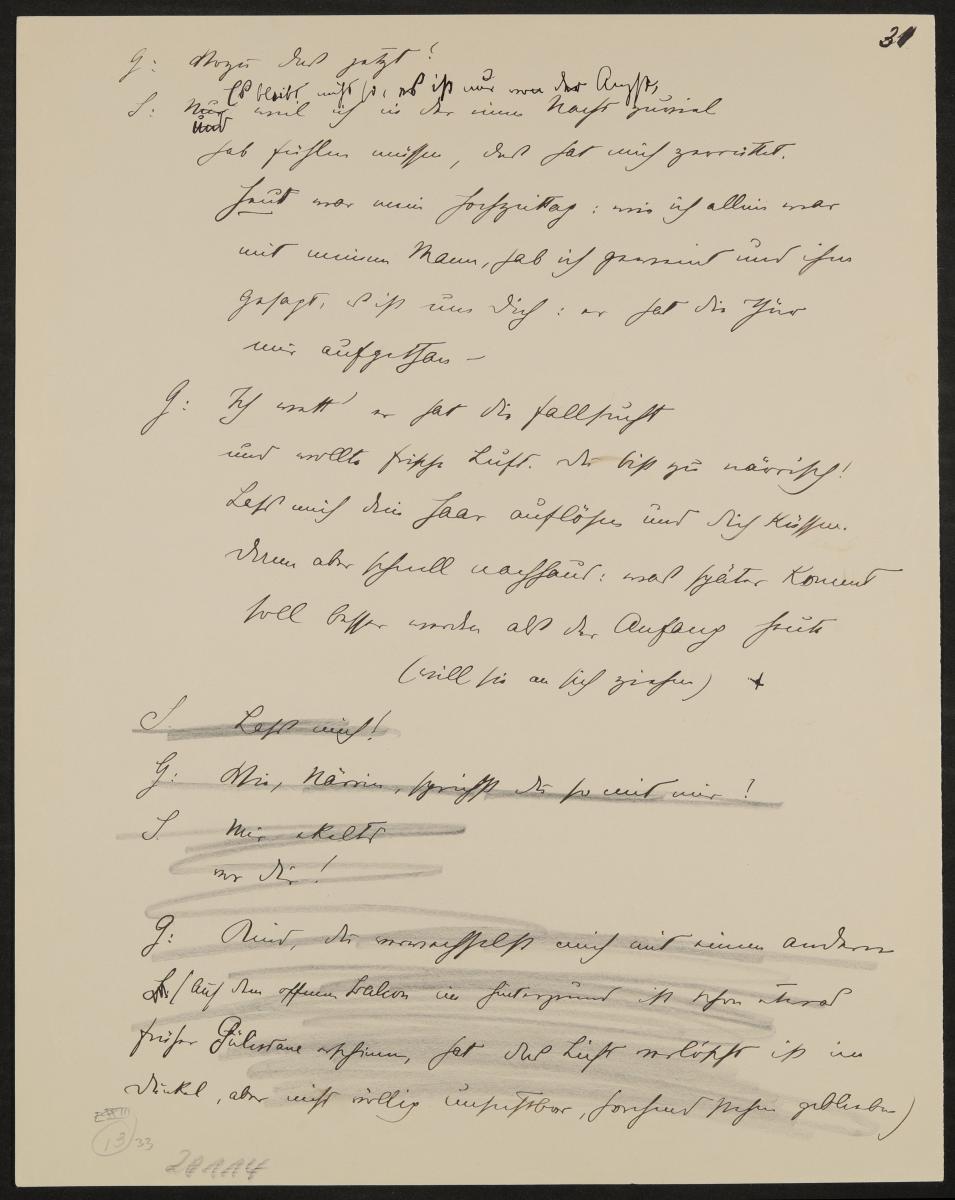 31
G: Wozu das jetzt!
Es bleibt nicht so, es ist nur von der Angst,
S: Nur weil ich in der einen Nacht zuviel
und
hab fühlen müssen, das hat mich zerrüttet.
Heut war mein Hochzeittag: wie ich allein war
mit meinem Mann, hab ich geweint und ihm
gesagt, 's ist um Dich: er hat die Thür
mir aufgethan –
G: Ich wett' er hat die Fallsucht
und wollte frische Luft. Du bist zu närrisch!
Lass mich dein Haar auflösen und dich küssen.
Dann aber schnell nachhaus: was später kommt
soll besser werden als der Anfang heute
(will sie an sich ziehen)
S. Lass mich!
G: Wie, Närrin, sprichst du so mit mir!
S. Mir ekelts
vor dir!
G: Kind, du verwechselst mich mit einem andern
(Auf dem offenen Balcon im Hintergrund ist schon etwas
früher Gülistane erschienen, hat das Licht verlöscht ist im
Dunkel, aber nicht völlig unsichtbar, horchend stehen geblieben)
13
33